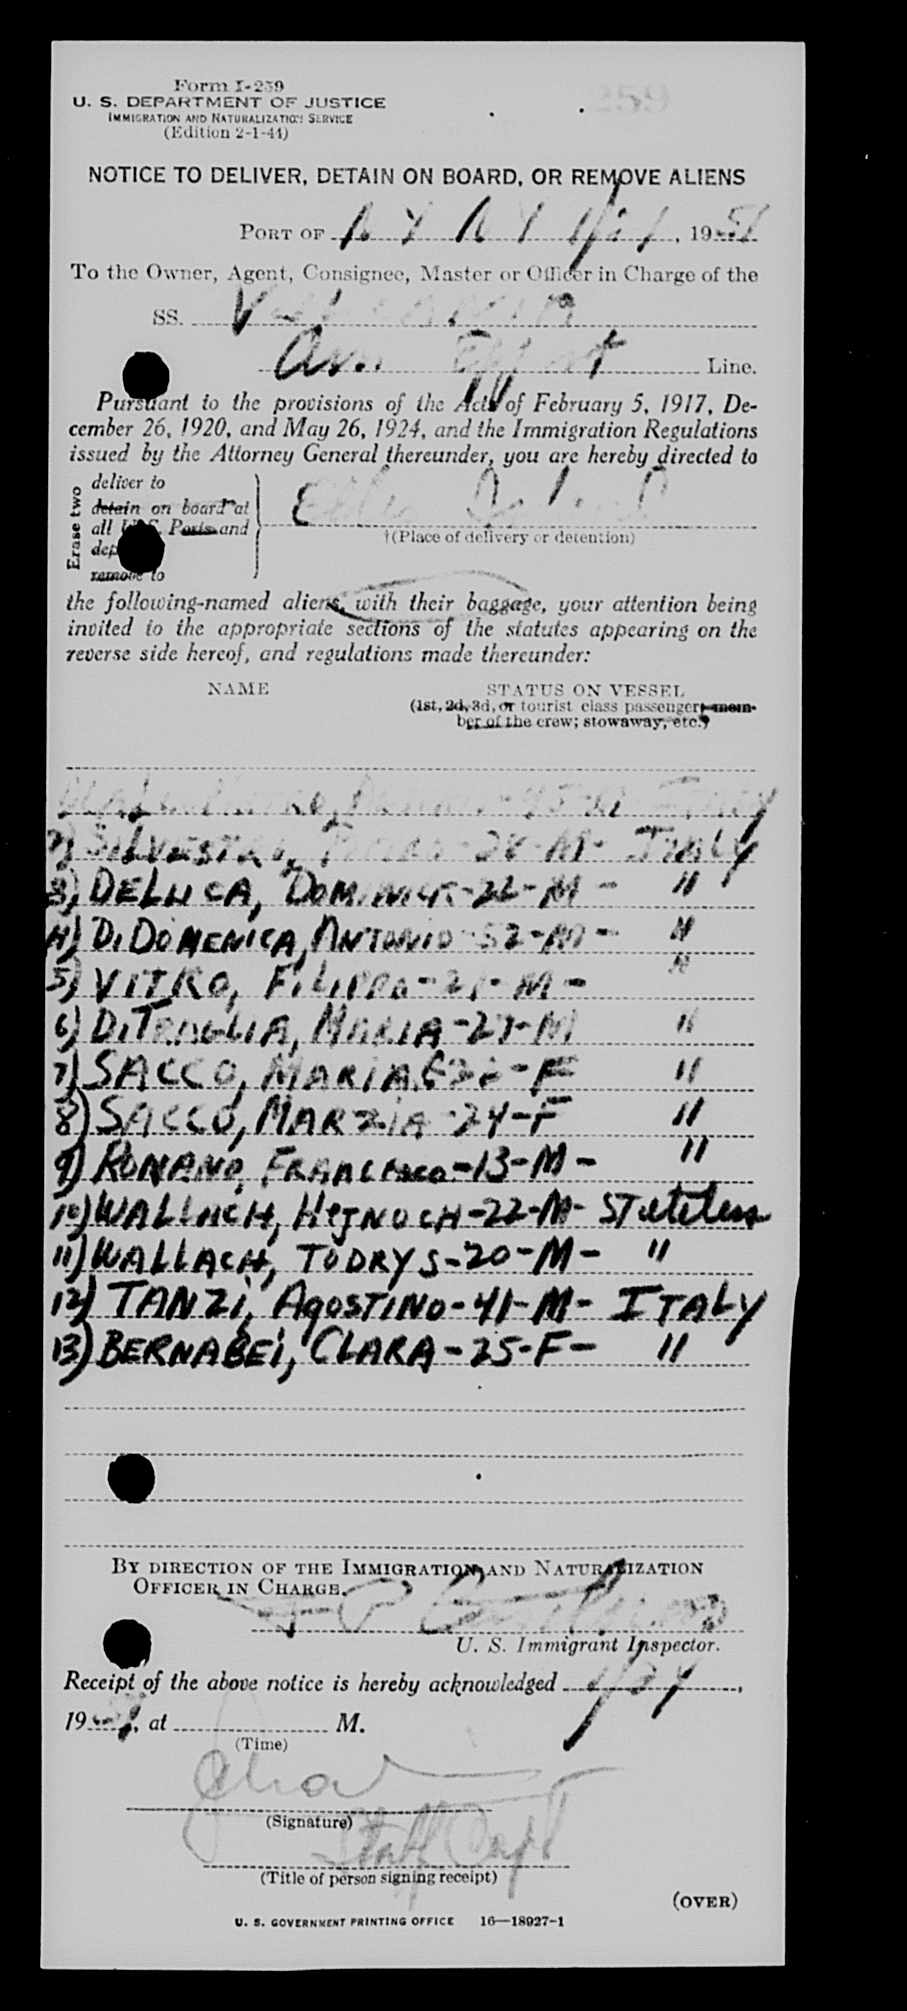 259
Form I-259
U. S. DEPARTMENT OF JUSTICE
IMMIGRATION AND NATURALIZATION SERVICE
(Edition 2-1-44)
NOTICE TO DELIVER, DETAIN ON BOARD, OR REMOVE ALIENS
PORT OF N Y N Y 1/24, 1951
To the Owner, Agent, Consignee, Master or Officer in Charge of the
SS.
Am. Export Line.
Pursuant to the provisions of the Acts of February 5, 1917, De-
cember 26, 1920, and May 26, 1924, and the Immigration Regulations
issued by the Attorney General thereunder, you are hereby directed to
Erase two
deliver to
detain on board at
all U.S. Ports and
dep
remove to
Ellis Island
†(Place of delivery or detention)
the following-named aliens, with their baggage, your attention being
invited to the appropriate sections of the statutes appearing on the
reverse side hereof, and regulations made thereunder:
NAME STATUS ON VESSEL
(1st, 2d, 3d, or tourist class passenger; mem-
ber of the crew; stowaway, etc.)
Italy
2) SILVESTRI, - 28 - M - ITALY
3) DELUCA, DOMINICK - 22 - M - "
4) DIDOMENICA, ANTONIO - 52 - M - "
5) VITRO, FILIPPO - 21 - M - "
6) DITRAGLIA, MARIA - 27 - M "
7) SACCO, MARIA - F "
8) SACCO, MARZIA - 24 - F "
9) ROMANO, FRANCESCO - 13 - M - "
10) WALLACH, HEJNOCH - 22 - M - Stateless
11) WALLACH, TODRYS - 20 - M - "
12) TANZI, AGOSTINO - 41 - M - ITALY
13) BERNABEI, CLARA - 25 - F - "
BY DIRECTION OF THE IMMIGRATION AND NATURALIZATION
OFFICER IN CHARGE.
U. S. Immigrant Inspector.
Receipt of the above notice is hereby acknowledged 1/24,
1951, at M.
(Time)
(Signature)
Staff Capt
(Title of person signing receipt)
(OVER)
U. S. GOVERNMENT PRINTING OFFICE 16—18927-1